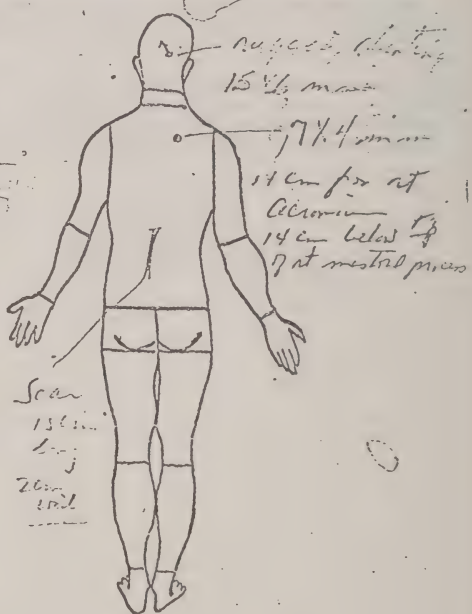 ragged, slanting
15 X 6 mm
7 X 4 mm
14 cm from rt
acromion
14 cm below tip
of rt mastoid process
Scar
long
2 cm